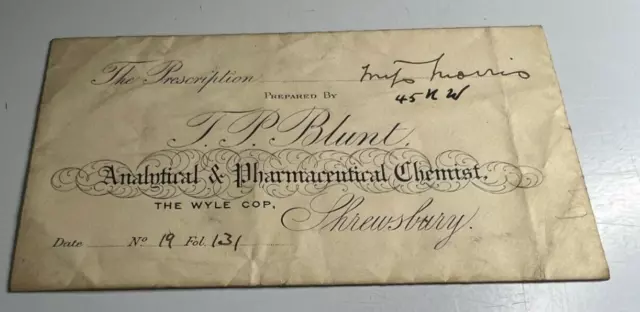 The Prescription Mrs Morris
45 N W
Prepared By
T. P. Blunt,
Analytical & Pharmaceutical Chemist,
THE WYLE COP,
Shrewsbury.
Date No 19 Fol. 131